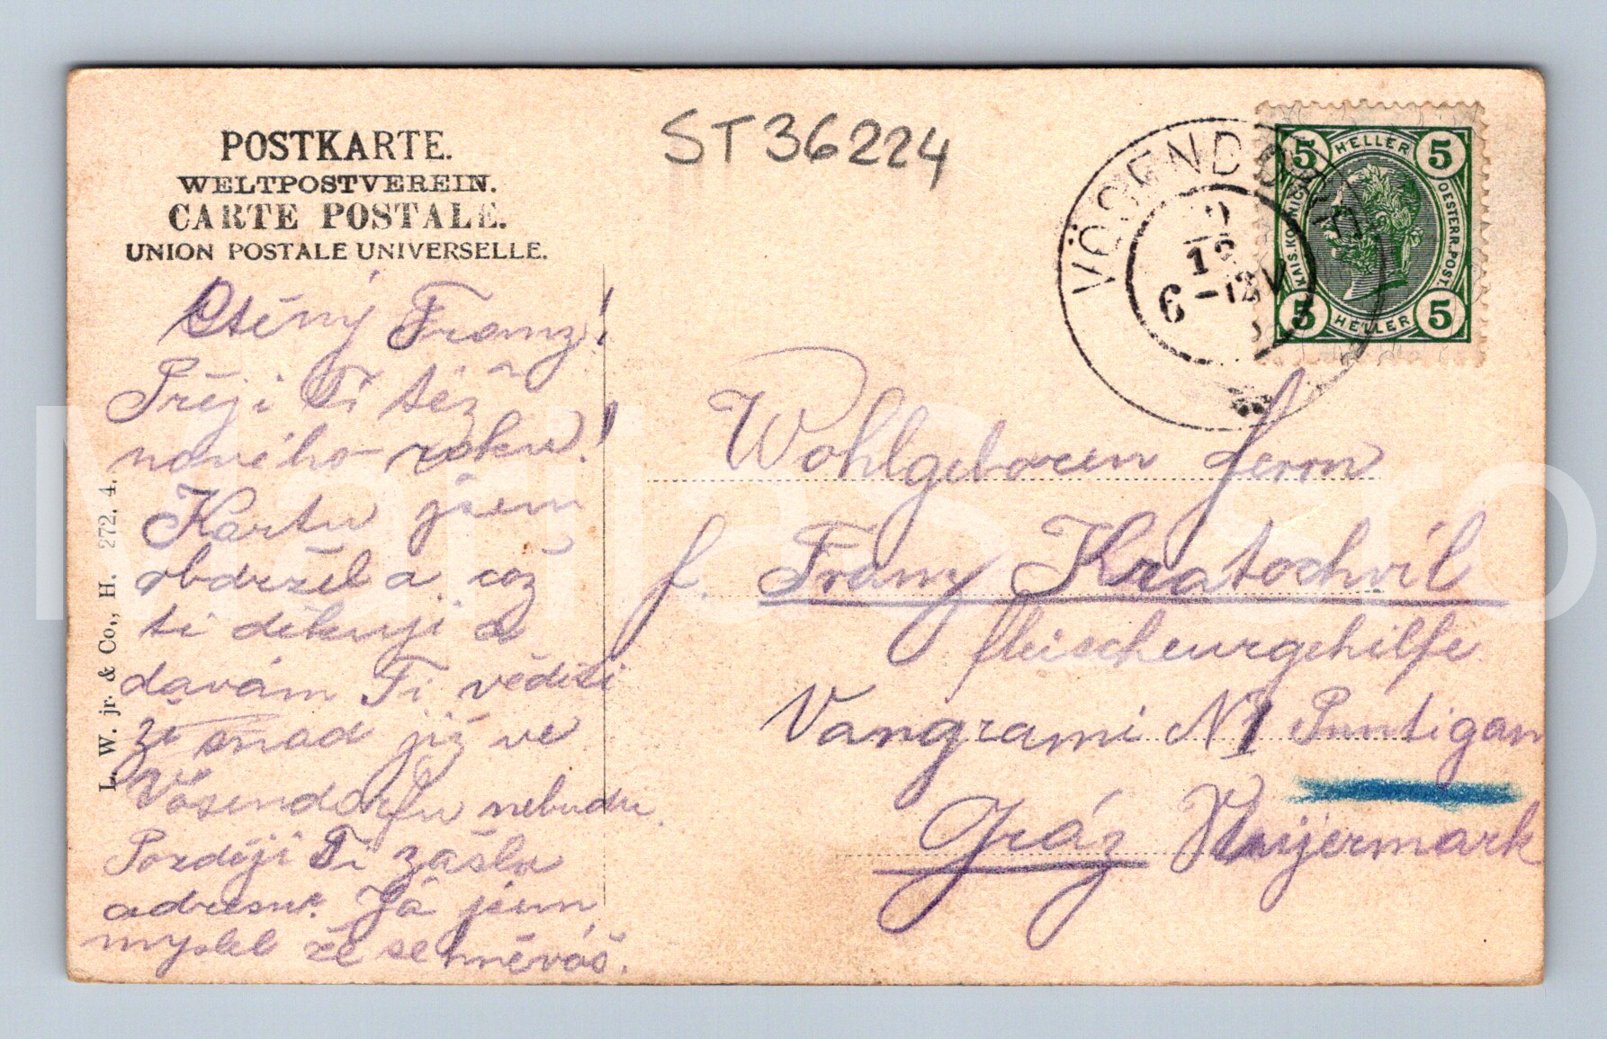 POSTKARTE.
WELTPOSTVEREIN.
CARTE POSTALE.
UNION POSTALE UNIVERSELLE.
ST36224
VÖSENDORF
6
5 HELLER 5
KAIS. KÖNIGL. OESTERR. POST.
5 HELLER 5
Ctěný Franz!
Přeji Ti též
nového roku!
Kartu jsem
obdržel a, což
ti děkuji a
davám Ti věditi
že snad již ve
Vösendorfu nebudu.
Později Ti zašlu
adresu. Já jsem
myslel že se hněváš.
L. W. jr. & Co., H. 272, 4.
Wohlgeboren Herrn
f. Franz Kratochvíl
fleischeurgehilfe
Vangrami N1 Puntigam
Gráz Steijermark